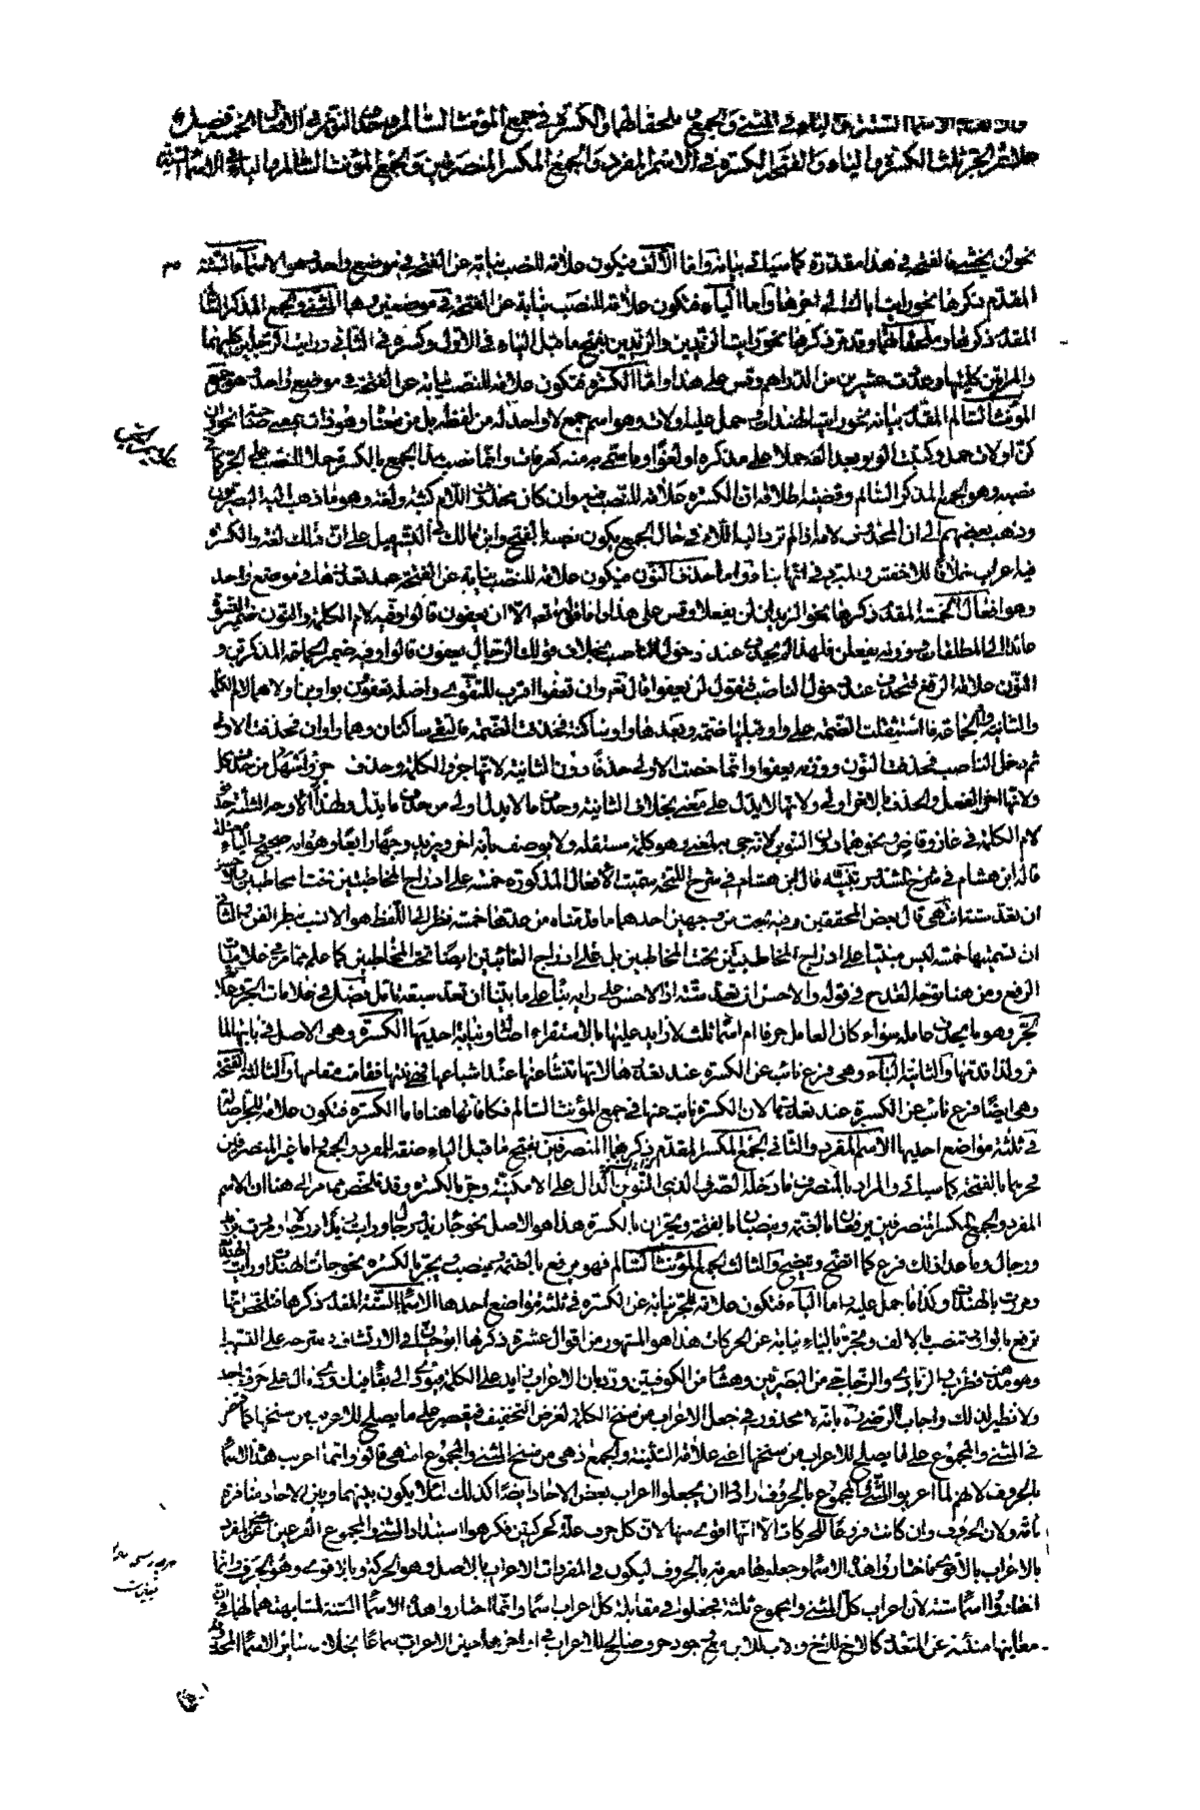 والالف في الاسماء الستة والياء في المثنى والجمع وملحقاتهما والكسرة في جمع المؤنث السالم وحذف النون في الافعال الخمسة فصل
علائم الجر ثلث الكسرة والياء والفتحة الكسرة في الاسم المفرد والجمع المكسر المنصرفين والجمع المؤنث السالم والياء في الاسماء الستة
نحو لن يخشى فالفتحة في هذا مقدرة كما سيأتي بيانه واما الألف فيكون علامة للنصب نيابة عن الفتحة في موضع واحد هو الاسماء الستة
المقدم ذكرها نحو رايت اباك الى اخرها واما الياء فتكون علامة للنصب نيابة عن الفتحة في موضعين هما المثنى والجمع المذكر السالم
المقدم ذكرهما وملحقاتهما وقد مر ذكرها نحو رايت الزيدين والزيدين بفتح ما قبل الياء في الاول وكسره في الثاني ورايت الرجلين كليهما
والمراتين كلتيهما وعددت عشرين من الدراهم وقس على هذا واما الكسرة فتكون علامة للنصب نيابة عن الفتحة في موضع واحد هو جمع
المؤنث السالم المقدم بيانه نحو رايت الهندات وحمل عليه اولات وهو اسم جمع لا واحد له من لفظه بل من معناه وهو ذات بمعنى صاحبة نحو وان
كن اولات حمل
نصبه وهو الجمع المذكر السالم وقضية اطلاقه ان الكسرة علامة للنصب فيه وان كان محذوف اللام كثبة ولغة وهو ما ذهب اليه البصريون
وذهب بعضهم الى ان المحذوف لامه اذا لم ترد اليه اللام في حال الجمع يكون نصبه بالفتح وابن مالك في التسهيل على ان ذلك لغة والكسرة
فيه اعراب خلافا للاخفش والمبرد في انها بناء واما حذف النون فيكون علامة للنصب نيابة عن الفتحة عند تعذرها في موضع واحد
وهو افعال الخمسة المقدم ذكرها نحو الزيدان لن يفعلا وقس على هذا واما قوله تعم الا ان يعفون فالواو فيه لام الكلمة والنون ضمير النسوة
عائد الى المطلقات ووزنه يفعلن فلهذا لم يحذف عند دخول الناصب بخلاف قولك الرجال يعفون فالواو فيه ضمير الجماعة المذكرين و
النون علامة الرفع فتحذف عند دخول الناصب فتقول لن يعفوا قال تعم وان تعفوا اقرب للتقوى واصله تعفوون بواوين اولاهما لام الكلمة
والثانية واو الجماعة فاستثقلت الضمة على واو قبلها ضمة وبعدها واو ساكنة فحذفت الضمة فالتقى ساكنان وهما واوان فحذفت الاولى
ثم دخل الناصب فحذفت النون ووزنه يعفوا وانما خصت الاولى بالحذف دون الثانية لانها جزء الكلمة وحذف جزء اسهل من حذف كل
ولانها اخر الفعل والحذف بالاخر اولى ولانها لا يدل على معنى بخلاف الثانية وحذف ما لا يدل اولى من حذف ما يدل ولهذه الاوجه الثلثة حذف
لام الكلمة في غاز وقاض ونحوهما دون التنوين لانه جيء به لمعنى وهو كلمة مستقلة ولا يوصف بانه اخر ويزيد وجها رابعا وهو انه صحيح والياء معتلة
قاله ابن هشام في شرح الشذور تنبيه قال ابن هشام في شرح اللمحة سميت الافعال المذكورة خمسة على ادراج المخاطبتين تحت المخاطبين والاحسن
ان تعد ستة انتهى قال بعض المحققين وفيه بحث من وجهين احدهما ما قدمناه من عدها خمسة نظرا الى اللفظ هو الانسب بنظر الفن الثاني
ان تسميتها خمسة ليس مبنيا على ادراج المخاطبتين تحت المخاطبين بل على ادراج الغائبتين ايضا تحت المخاطبين كما علم مما مر في علامات
الرفع ومن هنا توجه القدح في قوله والاحسن ان تعد ستة اذ الاحسن على رايه بناء على ما بينا ان تعد سبعة تامل فصل في علامات الجر علائم
الجر وهو ما يحدثه عامله سواء كان العامل حرفا ام اسما ثلث لا زايد عليها بالاستقراء اصالة ونيابة احديها الكسرة وهي الاصل في بابها لما
مر ولذا قدمها والثانية الياء وهي فرع نائب عن الكسرة عند تعذرها لانها تنشأ عنها عند اشباعها فهي بنتها فقامت مقامها والثالثة الفتحة
وهي ايضا فرع نائب عن الكسرة عند تعذرها لان الكسرة نابت عنها في جمع المؤنث السالم فكافأتها هنا فاما الكسرة فتكون علامة للجر اصالة
في ثلثة مواضع احديها الاسم المفرد والثاني الجمع المكسر المقدم ذكرهما المنصرفين بفتح ما قبل الياء صفة للمفرد والجمع اما غير المنصرفين
فجرهما بالفتحة كما سيأتي والمراد بالمنصرف ما دخله الصرف الذي هو التنوين الدال على الامكنية وجر بالكسرة وقد تلخص مما مر الى هنا ان الاسم
المفرد والجمع المكسر المنصرفين يرفعان بالضمة وينصبان بالفتحة ويجران بالكسرة هذا هو الاصل نحو جاء زيد ورجال ورايت زيدا ورجالا ومررت بزيد
ورجال وما عدا ذلك فرع كما اتضح ويتضح والثالث الجمع المؤنث السالم فهو يرفع بالضمة وينصب ويجر بالكسرة نحو جاءت الهندات ورايت الهندات
ومررت بالهندات وكذا ما حمل عليه واما الياء فتكون علامة للجر نيابة عن الكسرة في ثلثة مواضع احدها الاسماء الستة المقدم ذكرها فتلخص انها
ترفع بالواو وتنصب بالالف وتجر بالياء نيابة عن الحركات هذا هو المشهور من اقوال عشرة ذكرها ابو حيان في الارتشاف
وهو مذهب قطرب والزيادي والزجاجي من البصريين وهشام من الكوفيين ورد بان الاعراب زايد على الكلمة فيؤدي الى بقاء فيك وذي مال على حرف واحد
ولا نظير لذلك واجاب الرضي ره بانه لا محذور في جعل الاعراب من سنخ الكلمة لغرض التخفيف فيقصر على ما يصلح للاعراب من سنخها كما قصر
في المثنى والمجموع على ما يصلح للاعراب من سنخها اعني علامة التثنية والجمع اذ هي من سنخ المثنى والمجموع انتهى قالوا وانما اعرب هذه الاسماء
بالحروف لانهم لما اعربوا المثنى والمجموع بالحروف ارادوا ان يجعلوا اعراب بعض الاحاد ايضا كذلك لئلا يكون بينهما وبين الاحاد منافرة
تامة ولان الحروف وان كانت فروعا للحركات الا انها اقوى منها لان كل حرف علة كحركتين فكرهوا استبداد المثنى والمجموع الفرعين عن المفرد
بالاعراب بالاقوى فاختاروا هذه الاسماء وجعلوها معربة بالحروف ليكون في المفردات الاعراب بالاصل وهو الحركة وبالاقوى وهو الحرف وانما
اختاروا اسماء ستة لان اعراب كل من المثنى والمجموع ثلثة فجعلوا في مقابلة كل اعراب اسما وانما اختاروا هذه الاسماء الستة لمشابهتها لهما في ان
معانيها منبئة عن التعدد كالاخ للاخ والاب للابن مع وجود حرف صالح للاعراب في اواخرها حين الاعراب سماعا بخلاف سائر الاسماء المحذوفة